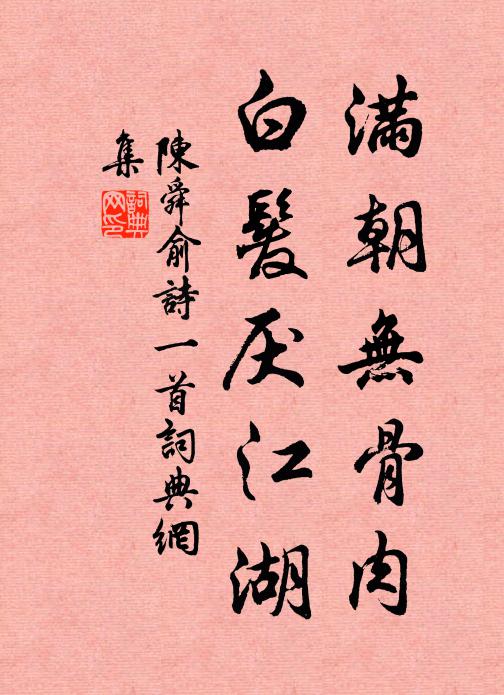 滿朝無骨肉
白髮厌江湖
陳舜俞詩一首詞典網
集
詞典
网印